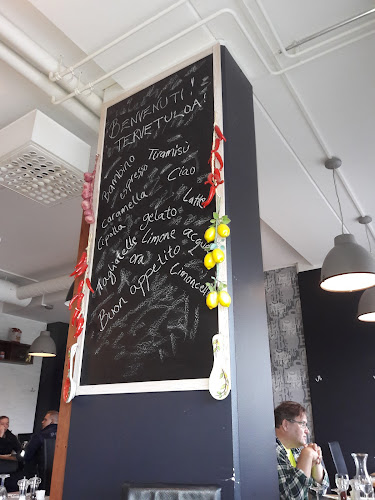 BENVENUTI!
TERVETULOA!
Bambino Tiramisù
espresso Ciao
Caramella Latte
Cipolla gelato
Tagliatelle Limone acqua
ora
Buon appetito!
Limoncello